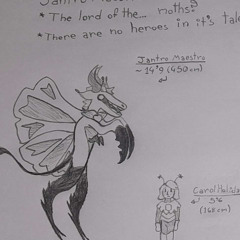 Jantro Ma
*The lord of the... moths?
*There are no heroes in it's tale
Jantro Maestro
~ 14'9 (450 cm)
Carol Hal
5'6
(168 cm)